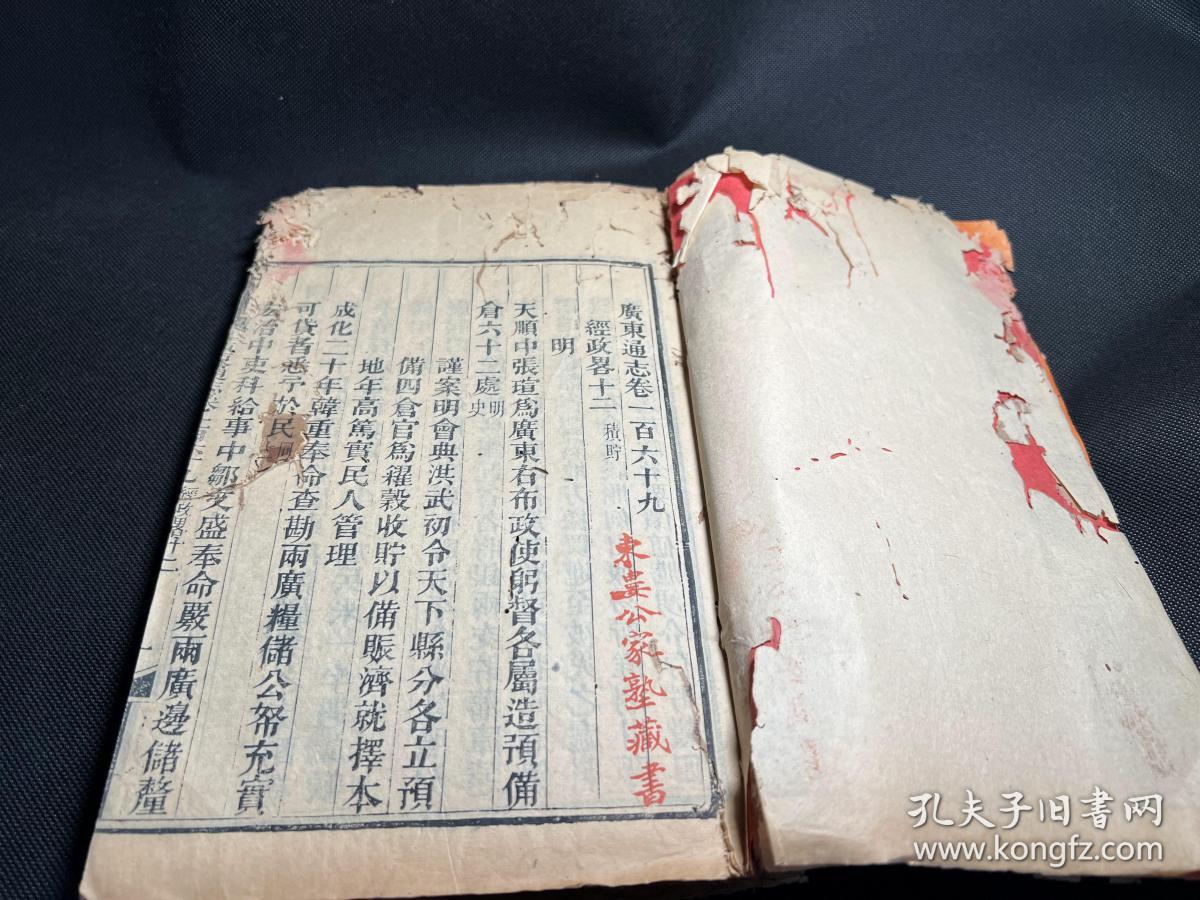 廣東通志卷一百六十九
東婁公家塾藏書
經政畧十二 積貯
明
天順中張瑄爲廣東右布政使躬督各屬造預備
倉六十二處明史
謹案明會典洪武初令天下縣分各立預
備四倉官爲糴穀收貯以備賑濟就擇本
地年高篤實民人管理
成化二十年韓重奉命查勘兩廣糧儲公帑充實
可貸者悉予於民
治中吏科給事中鄒文盛奉命嚴兩廣邊儲釐
經政畧十二
一
孔夫子旧书网
www.kongfz.com